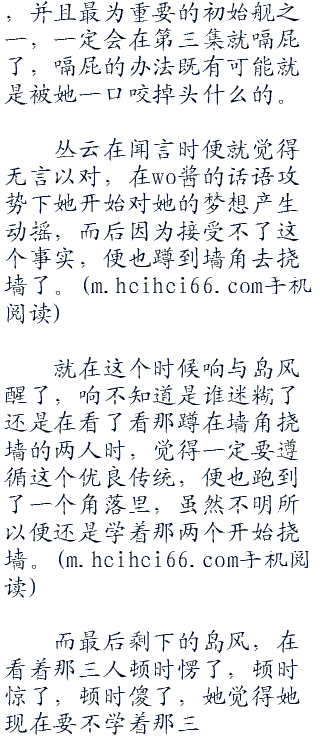 ，并且最为重要的初始舰之
一，一定会在第三集就嗝屁
了，嗝屁的办法既有可能就
是被她一口咬掉头什么的。
丛云在闻言时便就觉得
无言以对，在wo酱的话语攻
势下她开始对她的梦想产生
动摇，而后因为接受不了这
个事实，便也蹲到墙角去挠
墙了。(m.hcihci66.com手机
阅读)
就在这个时候响与岛风
醒了，响不知道是谁迷糊了
还是在看了看那蹲在墙角挠
墙的两人时，觉得一定要遵
循这个优良传统，便也跑到
了一个角落里，虽然不明所
以便还是学着那两个开始挠
墙。(m.hcihci66.com手机阅
读)
而最后剩下的岛风，在
看着那三人顿时愣了，顿时
惊了，顿时傻了，她觉得她
现在要不学着那三